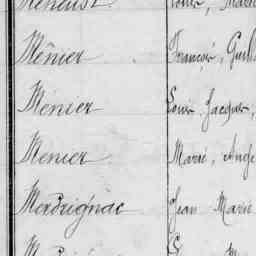 Ménier François, Guill
Ménier Louis, Jacques,
Menier Marie, Ange
Merdrignac Jean Marie